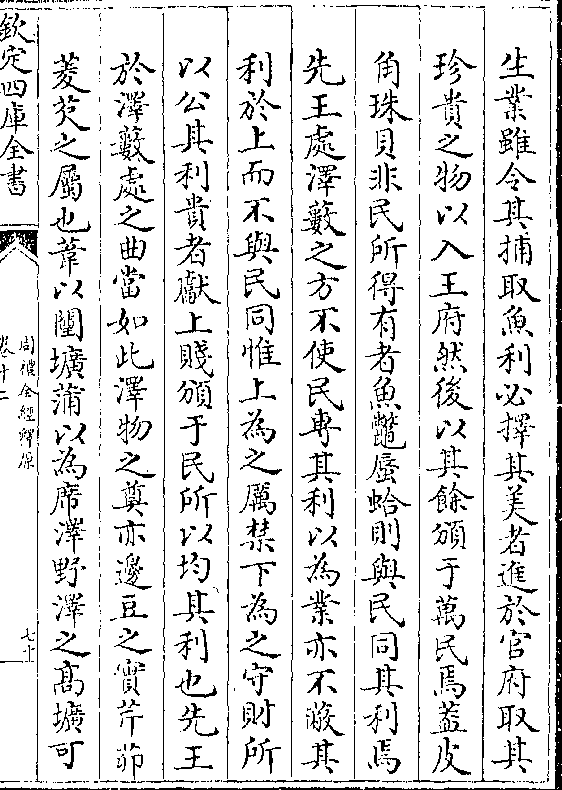 生業雖令其捕取魚利必擇其美者進於官府取其
珍貴之物以入王府然後以其餘頒于萬民焉蓋皮
角珠貝非民所得有者魚鼈蜃蛤則與民同其利焉
先王處澤藪之方不使民專其利以為業亦不歛其
利於上而不與民同惟上為之厲禁下為之守則所
以公其利貴者獻上賤頒于民所以均其利也先王
於澤藪處之曲當如此澤物之奠亦邊豆之實芹茆
菱芡之屬也葦以闉壙蒲以為席澤野澤之髙壙可
欽定四庫全書
周禮全經釋原
卷十二
七十